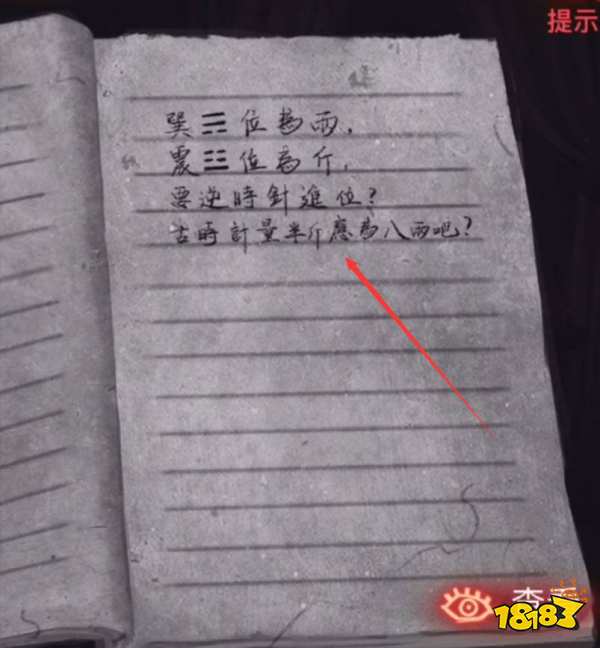 提示
巽☴位為兩，
震☳位為斤，
要逆時針進位？
古時計量半斤應為八兩吧？
18183